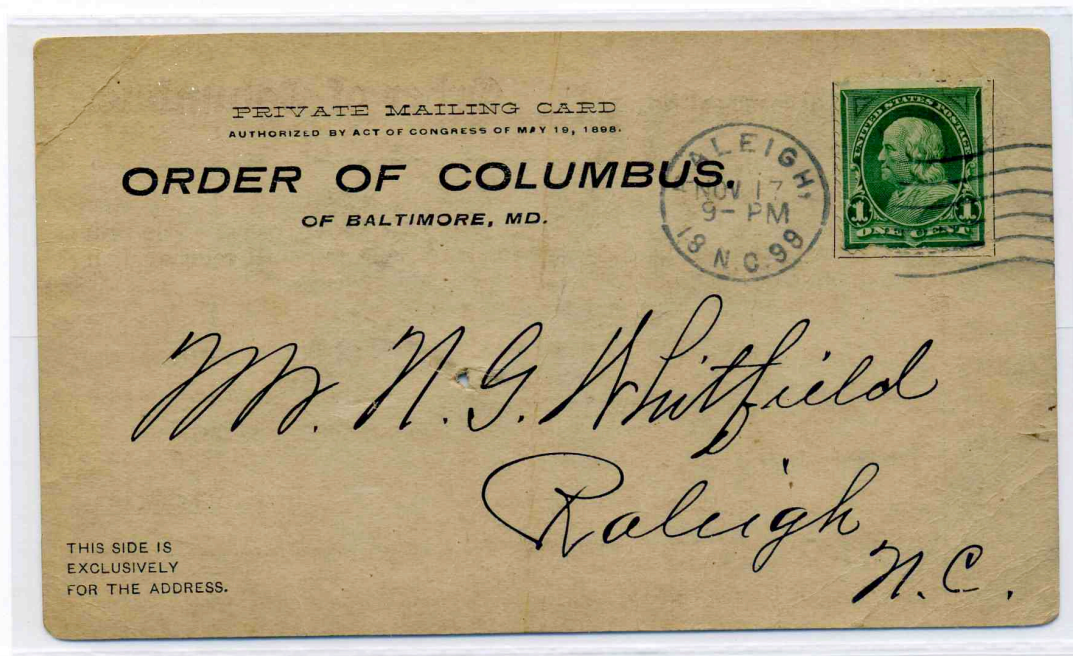 PRIVATE MAILING CARD
AUTHORIZED BY ACT OF CONGRESS OF MAY 19, 1898.
ORDER OF COLUMBUS.
OF BALTIMORE, MD.
RALEIGH,
NOV 17
9- PM
18 N.C. 99
UNITED STATES POSTAGE
1 1
ONE CENT
Mr. N. G. Whitfield
Raleigh
N. C.
THIS SIDE IS
EXCLUSIVELY
FOR THE ADDRESS.